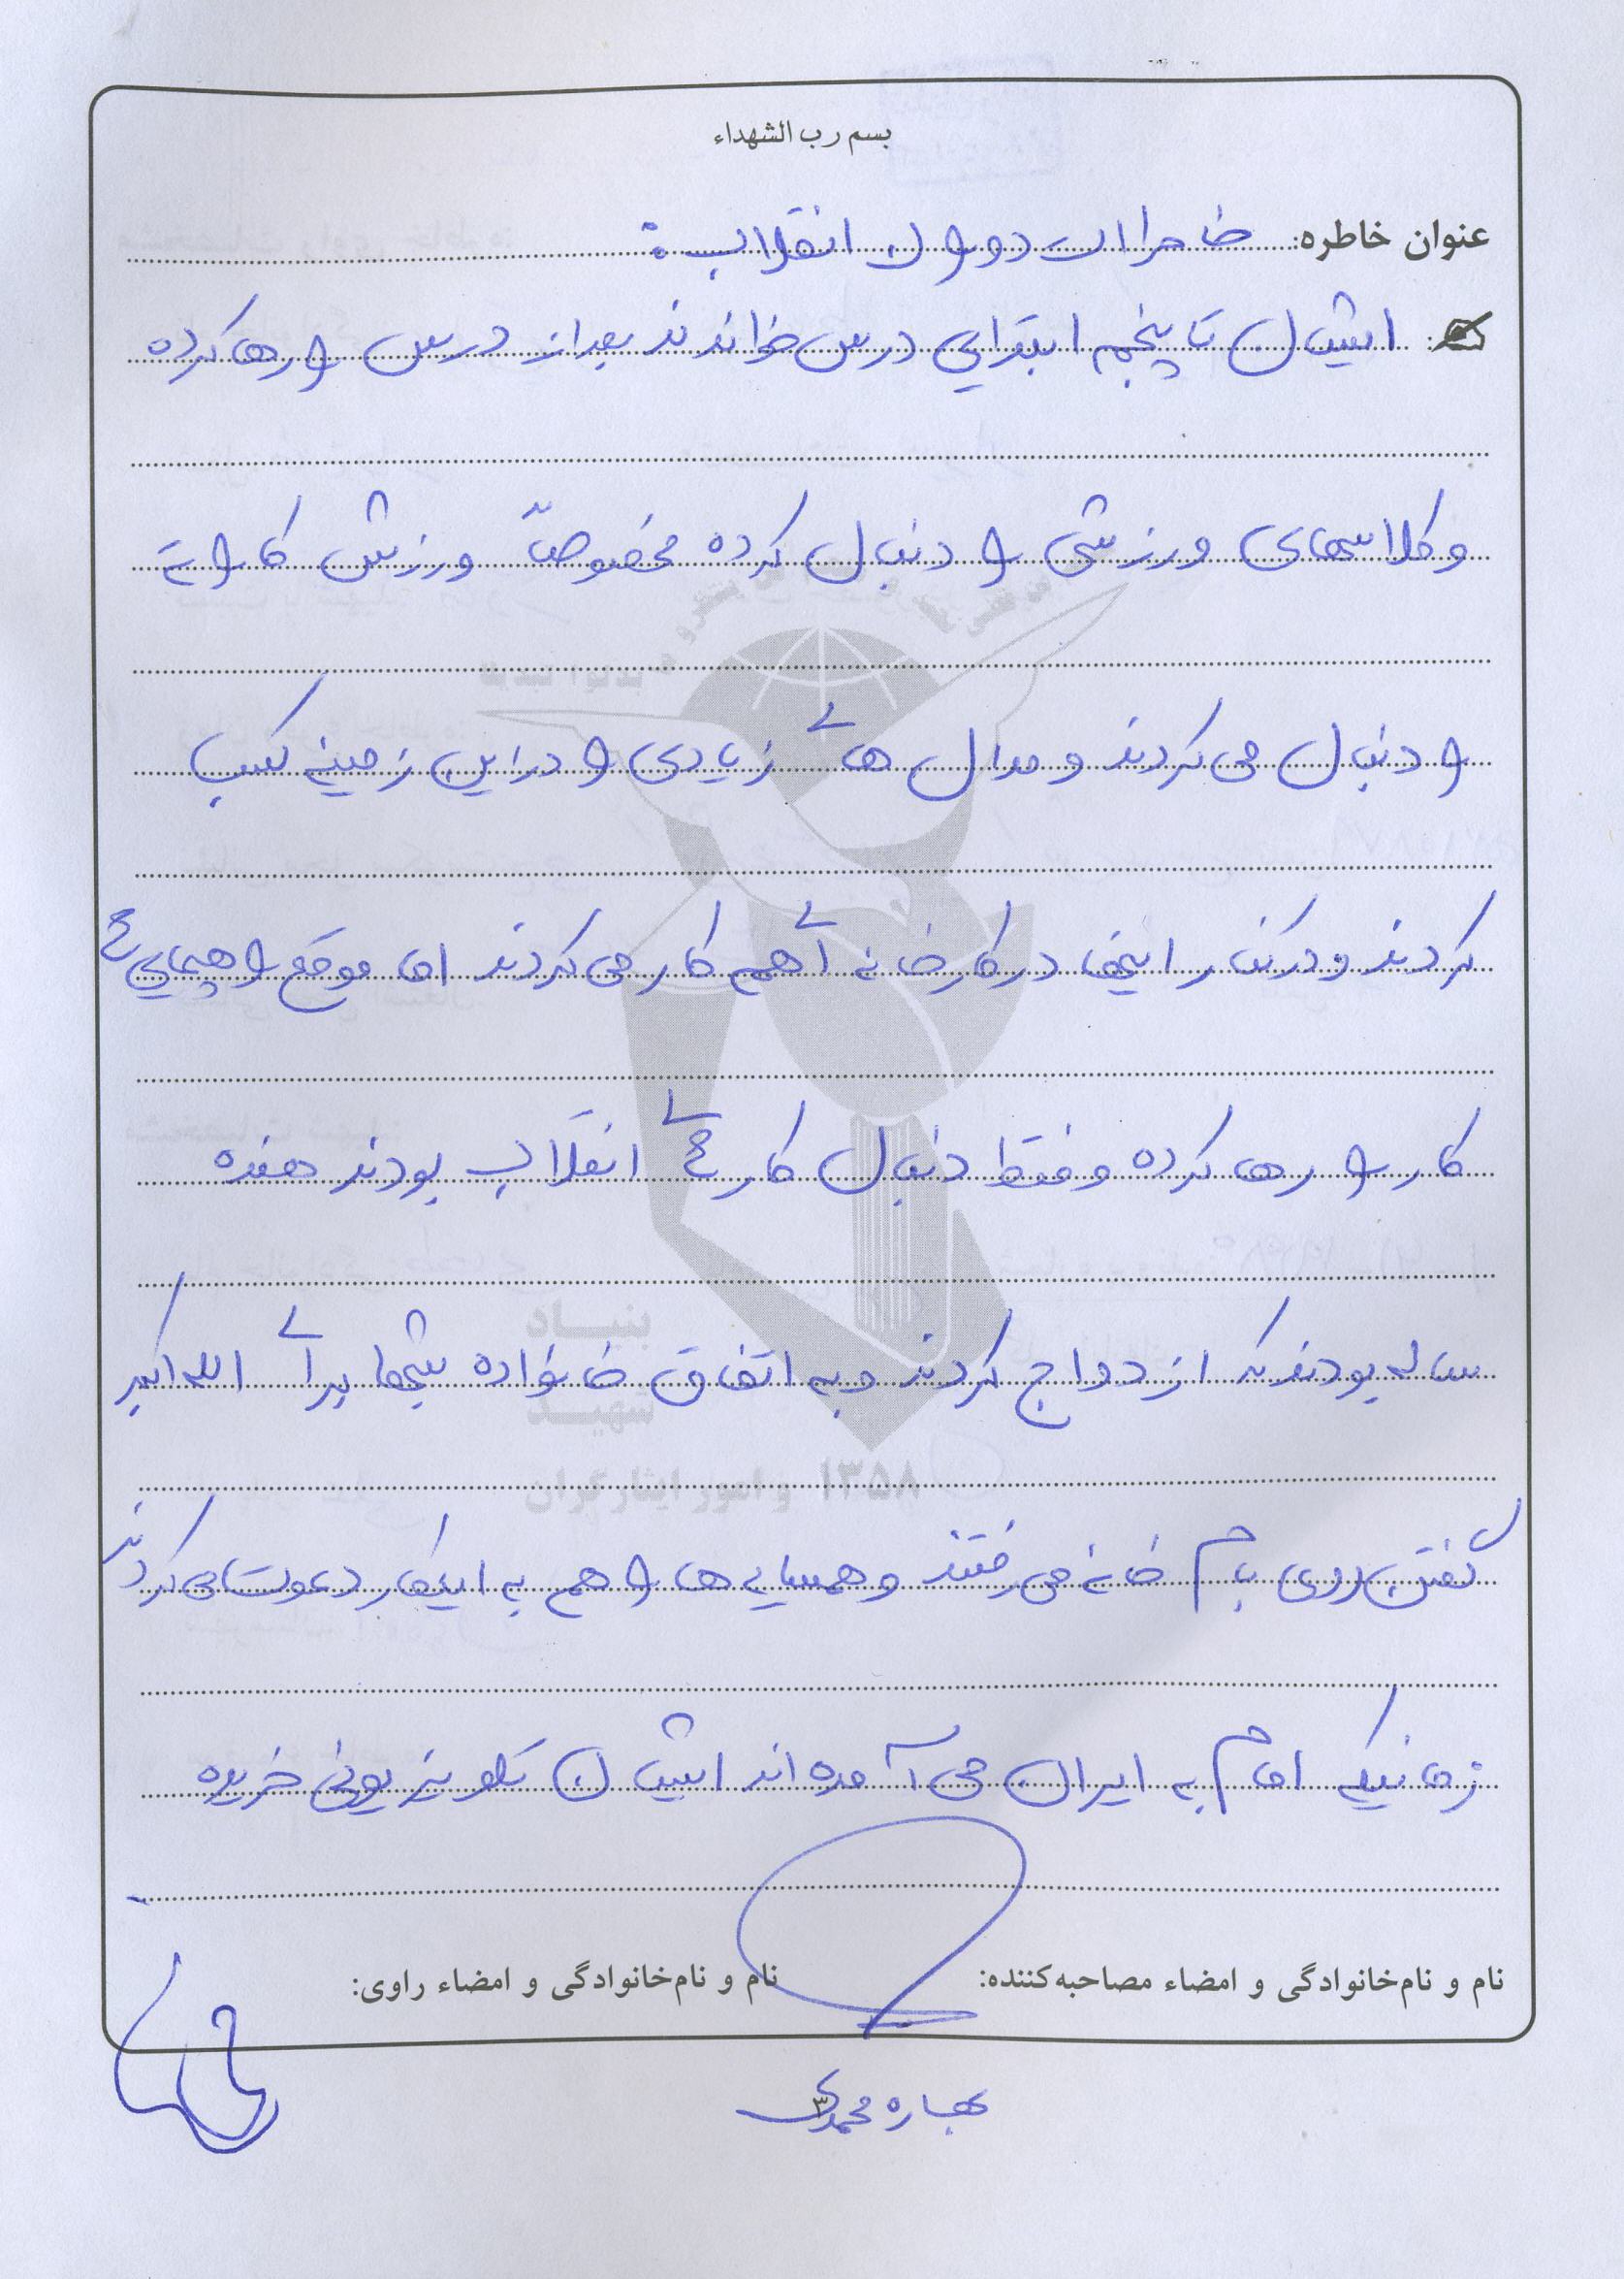 بسم رب الشهداء
عنوان خاطره: خاطرات دوران انقلاب :
ایشان تا پنجم ابتدایی درس خواندند بعد از درس را رها کرده
و کلاسهای ورزشی را دنبال کرده مخصوصاً ورزش کاراته
را دنبال می کردند و مدال های زیادی را در این زمینه کسب
کردند و در کنار اینها در کارخانه ای هم کار می کردند اما موقع راهپیمایی ها
کار را رها کرده و فقط دنبال کارهای انقلاب بودند هفده
ساله بودند که ازدواج کردند و به اتفاق خانواده شبها برای الله اکبر
گفتن روی بام خانه می رفتند و همسایه ها را هم به اینکار دعوت می کردند
زمانیکه امام به ایران می آمده اند ایشان تلویزیونی خریده
نام و نام‌خانوادگی و امضاء مصاحبه‌کننده:
نام و نام‌خانوادگی و امضاء راوی:
بهاره محمدی
۳
بنیاد
شهید
و امور ایثارگران ۱۳۵۸